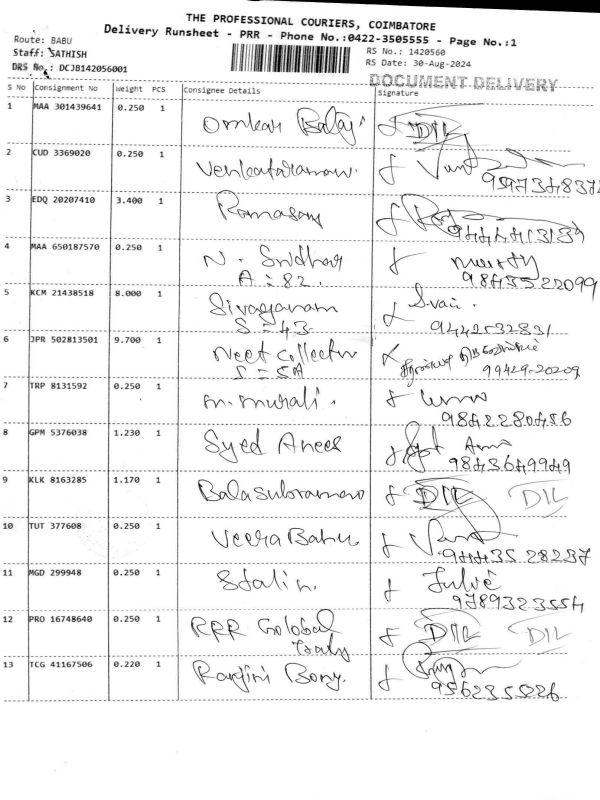 THE PROFESSIONAL COURIERS, COIMBATORE
Delivery Runsheet - PRR - Phone No.:0422-3505555 - Page No.:1
Route: BABU
Staff: SATHISH
DRS No.: DCJB142056001
RS No.: 1420560
RS Date: 30-Aug-2024
DOCUMENT DELIVERY
S No Consignment No Weight PCS Consignee Details Signature
1 MAA 301439641 0.250 1 Omkar Balaji DIL
2 CUD 3369020 0.250 1 Venkataraman
3 EDQ 20207410 3.400 1 Ramasamy
4 MAA 650187570 0.250 1 N. Sridhar
A = 82. 9843522099
5 KCM 21438518 8.000 1
S = 43 9442532831
6 JPR 502813501 9.700 1 Neet Collector
S = 5A 99429-20209
7 TRP 8131592 0.250 1 M. Murali.
9842280456
8 GPM 5376038 1.230 1 Syed Anees
9843649949
9 KLK 8163285 1.170 1 DIL DIL
10 TUT 377608 0.250 1 Veera Babu
9443528237
11 MGD 299948 0.250 1 Stalin.
9789323554
12 PRO 16748640 0.250 1 RRR Golobal DIL DIL
13 TCG 41167506 0.220 1 Ranjini Bony.
956235026